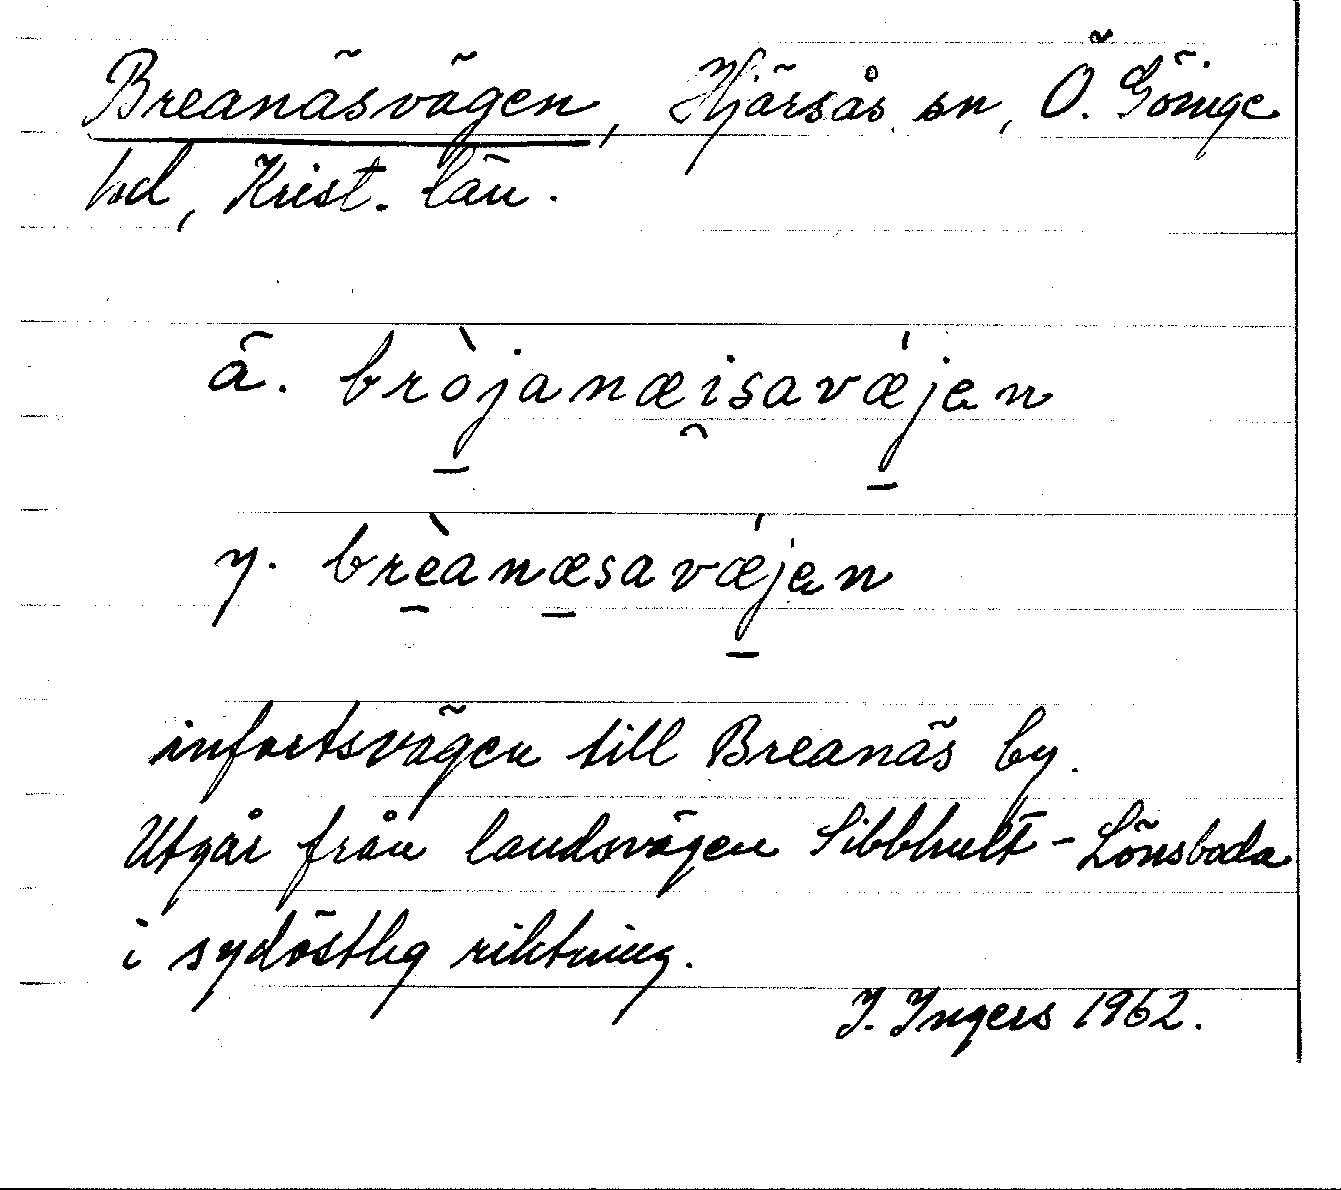 Breanäsvägen, Hjärsås sn, Ö. Göinge
hd, Krist. län.
ä. bròjanæisavǽjen
y. brèanæsavǽjen
infartsvägen till Breanäs by.
Utgår från landsvägen Sibbhult - Lönsboda
i sydöstlig riktning.
I. Ingers 1962.